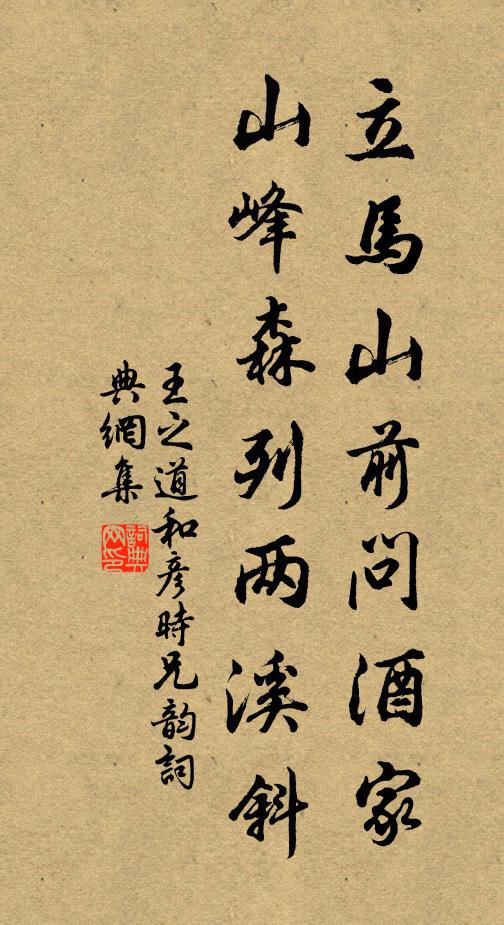 立馬山前問酒家
山峰森列两溪斜
王之道和彦時兄韵詞
典網集
詞典
网印